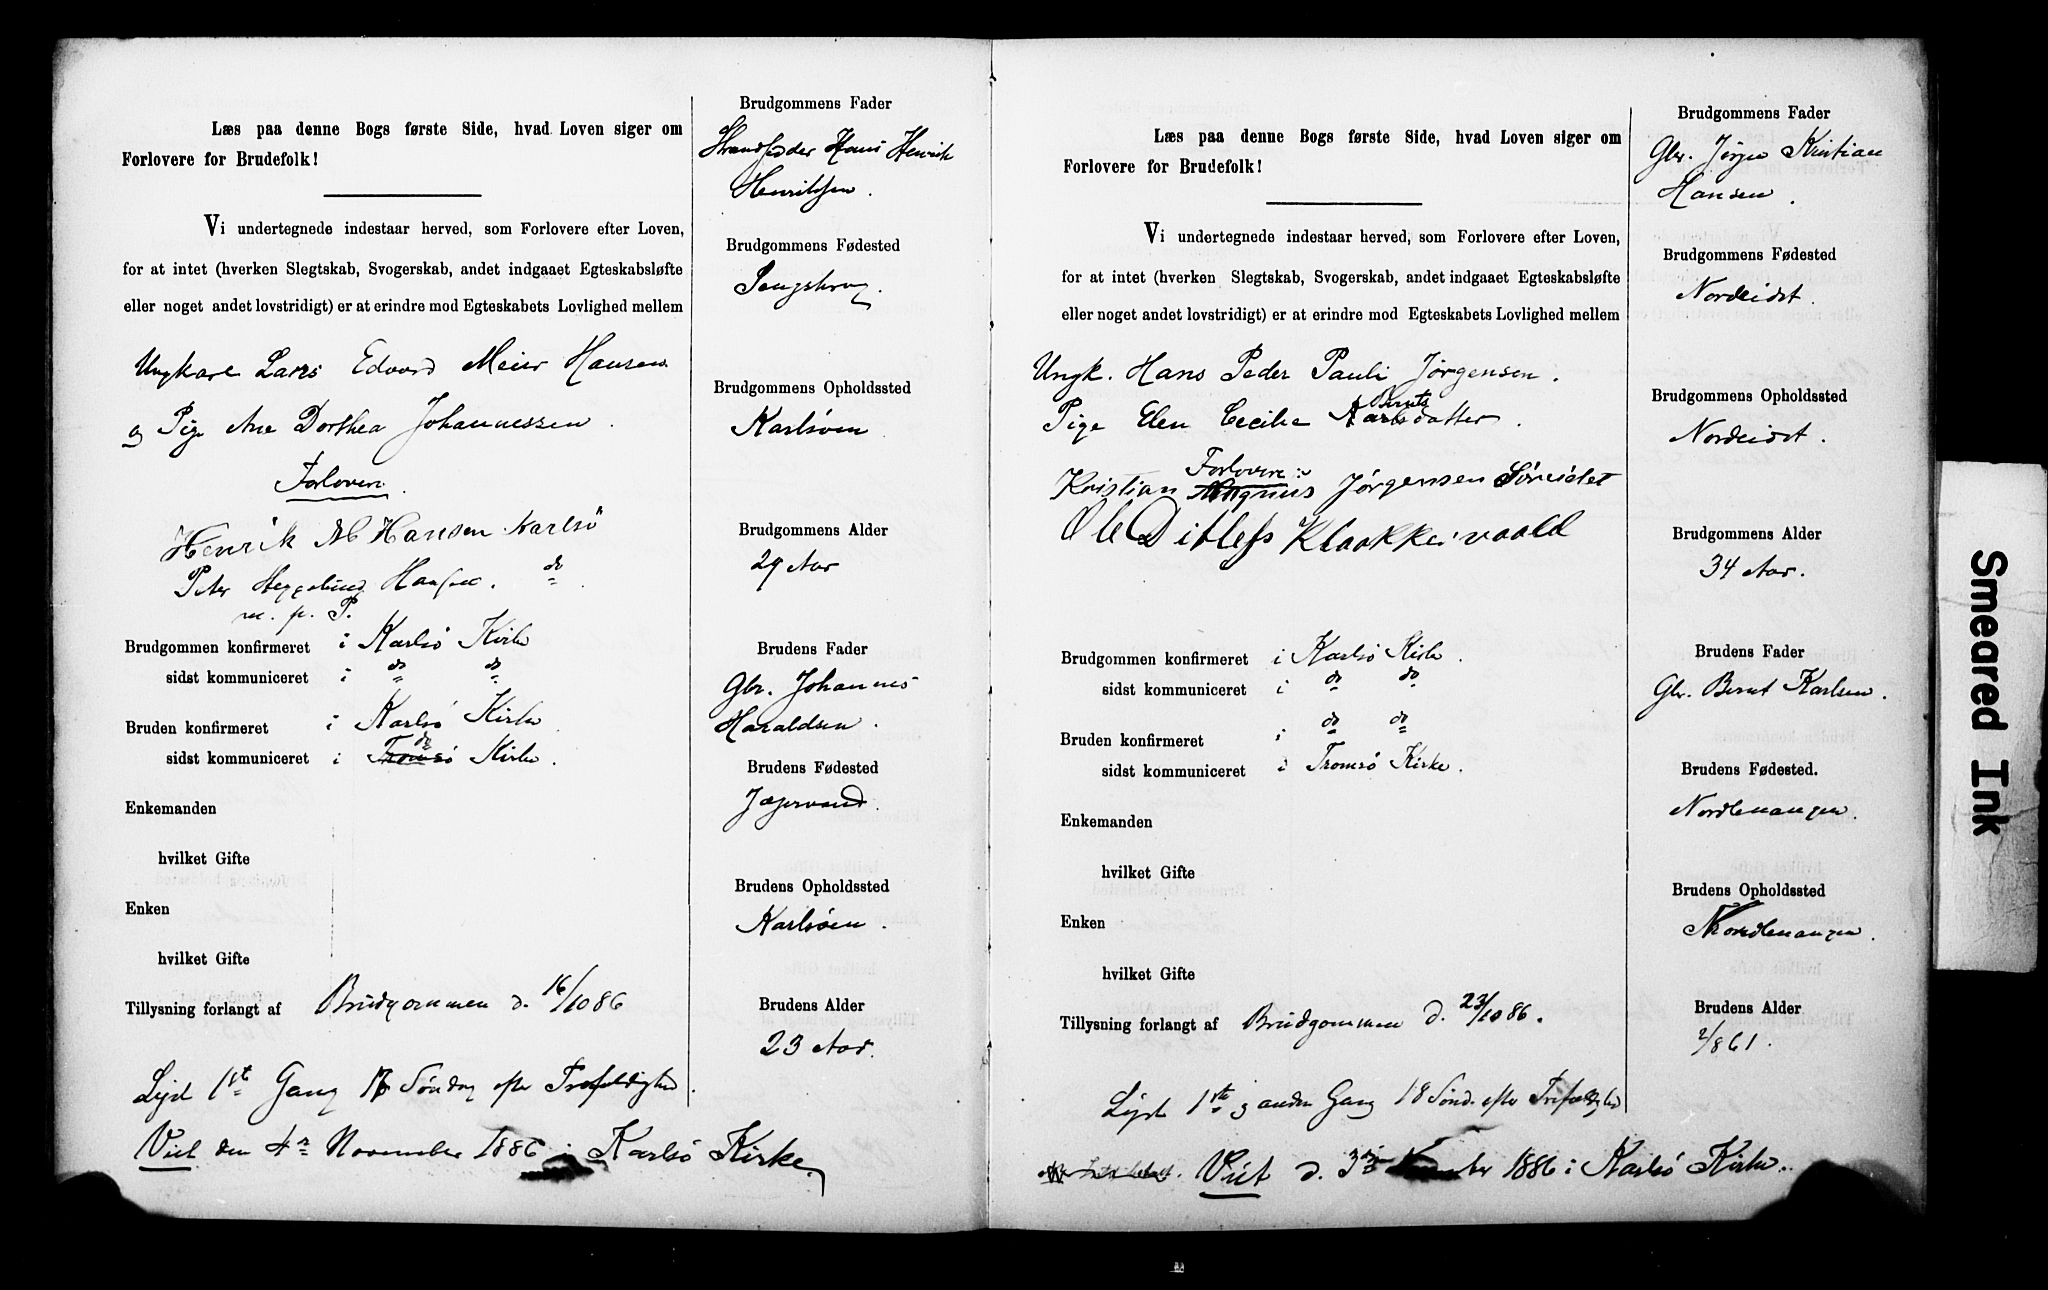 Læs paa denne Bogs første Side, hvad Loven siger om
Forlovere for Brudefolk!
Vi undertegnede indestaar herved, som Forlovere efter Loven,
for at intet (hverken Slegtskab, Svogerskab, andet indgaaet Egteskabsløfte
eller noget andet lovstridigt) er at erindre mod Egteskabets Lovlighed mellem
Ungkare Lars Edvard Meier Hansen
og Pige Ane Dorthea Johannessen.
Forlovere.
Henrik Hansen Karlsö
Peter Heggelund Hansen. do
m. p. P.
Brudgommen konfirmeret i Karlsö Kirke
sidst kommuniceret i do do
Bruden konfirmeret i Karlsö Kirke
do
sidst kommuniceret i Tromsö Kirke.
Enkemanden
hvilket Gifte
Enken
hvilket Gifte
Tillysning forlangt af Brudgommen d. 16/10 86
Lyst 1ste Gang 16 Söndag efter Trefoldighed.
Viet den 4de November 1886 i Karlsö Kirke.
Brudgommens Fader
Strandsidder Hans Henrik
Henriksen.
Brudgommens Fødested
Brudgommens Opholdssted
Karlsöen
Brudgommens Alder
29 Aar
Brudens Fader
Gbr. Johannes
Haraldsen.
Brudens Fødested
Jægervand.
Brudens Opholdssted
Karlsöen.
Brudens Alder
23 Aar.
Læs paa denne Bogs første Side, hvad Loven siger om
Forlovere for Brudefolk!
Vi undertegnede indestaar herved, som Forlovere efter Loven,
for at intet (hverken Slegtskab, Svogerskab, andet indgaaet Egteskabsløfte
eller noget andet lovstridigt) er at erindre mod Egteskabets Lovlighed mellem
Ungk. Hans Peder Pauli Jørgensen.
Pige Elen Cecilie Berntsdatter.
Forlovere:
Kristian Magnus Jørgensen Söreidet
Ole Ditlefs Klaakkervaald
Brudgommen konfirmeret i Karlsö Kirke.
sidst kommuniceret i do do
Bruden konfirmeret i do do
sidst kommuniceret i Tromsö Kirke.
Enkemanden
hvilket Gifte
Enken
hvilket Gifte
Tillysning forlangt af Brudgommen d. 23/10 86.
Lyst 1ste og anden Gang 18 Sönd. efter Trefoldighed
Viet d. 3die November 1886 i Karlsö Kirke.
Brudgommens Fader
Gbr. Jörgen Kristian
Hansen.
Brudgommens Fødested
Nordeidet.
Brudgommens Opholdssted
Nordeidet.
Brudgommens Alder
34 Aar.
Brudens Fader
Gbr. Bernt Karlsen.
Brudens Fødested.
Nordlenangen.
Brudens Opholdssted
Nordlenangen.
Brudens Alder
2/8 61.
Smeared Ink